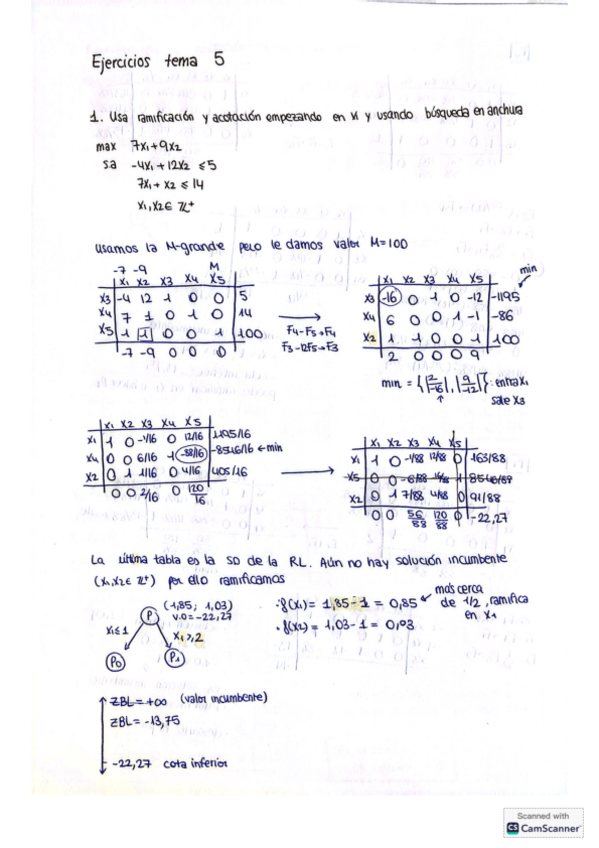 Ejercicios tema 5
1. Usa ramificación y acotación empezando en x1 y usando búsqueda en anchura
max 7x1+9x2
s.a -4x1+12x2 ≤5
7x1+x2 ≤ 14
x1,x2∈ Z+
usamos la M-grande pero le damos valor M=100
-7 -9 M
x1 x2 x3 x4 x5
x3 -4 12 1 0 0 5
x4 7 1 0 1 0 14
x5 1 1 0 0 1 100
-7 -9 0 0 0
F4-F5→F4
F3-12F5→F3
min
x1 x2 x3 x4 x5
x3 -16 0 1 0 -12 -1195
x4 6 0 0 1 -1 -86
x2 1 1 0 0 1 100
2 0 0 0 9
min = {|2/-16|, |9/-12|} : entra x1
sale x3
x1 x2 x3 x4 x5
x1 1 0 -1/16 0 12/16 1195/16
x4 0 0 6/16 1 -88/16 -8546/16 ← min
x2 0 1 1/16 0 4/16 405/16
0 0 2/16 0 120/16
x1 x2 x3 x4 x5
x1 1 0 -1/88 12/88 0 163/88
x2 0 1 7/88 4/88 0 91/88
0 0 56/88 120/88 0 -22,27
La última tabla es la SO de la RL. Aún no hay solución incumbente
(x1,x2∈ Z+) por ello ramificamos
(1,85; 1,03)
P v.o=-22,27
x1≤1 x1≥2
P0 P1
· f(x1)= 1,85-1 = 0,85 ← más cerca
de 1/2, ramifica
en x1
· f(x2) = 1,03-1 = 0,03
ZBL = +∞ (valor incumbente)
ZBL = -13,75
-22,27 cota inferior
Scanned with
CS CamScanner